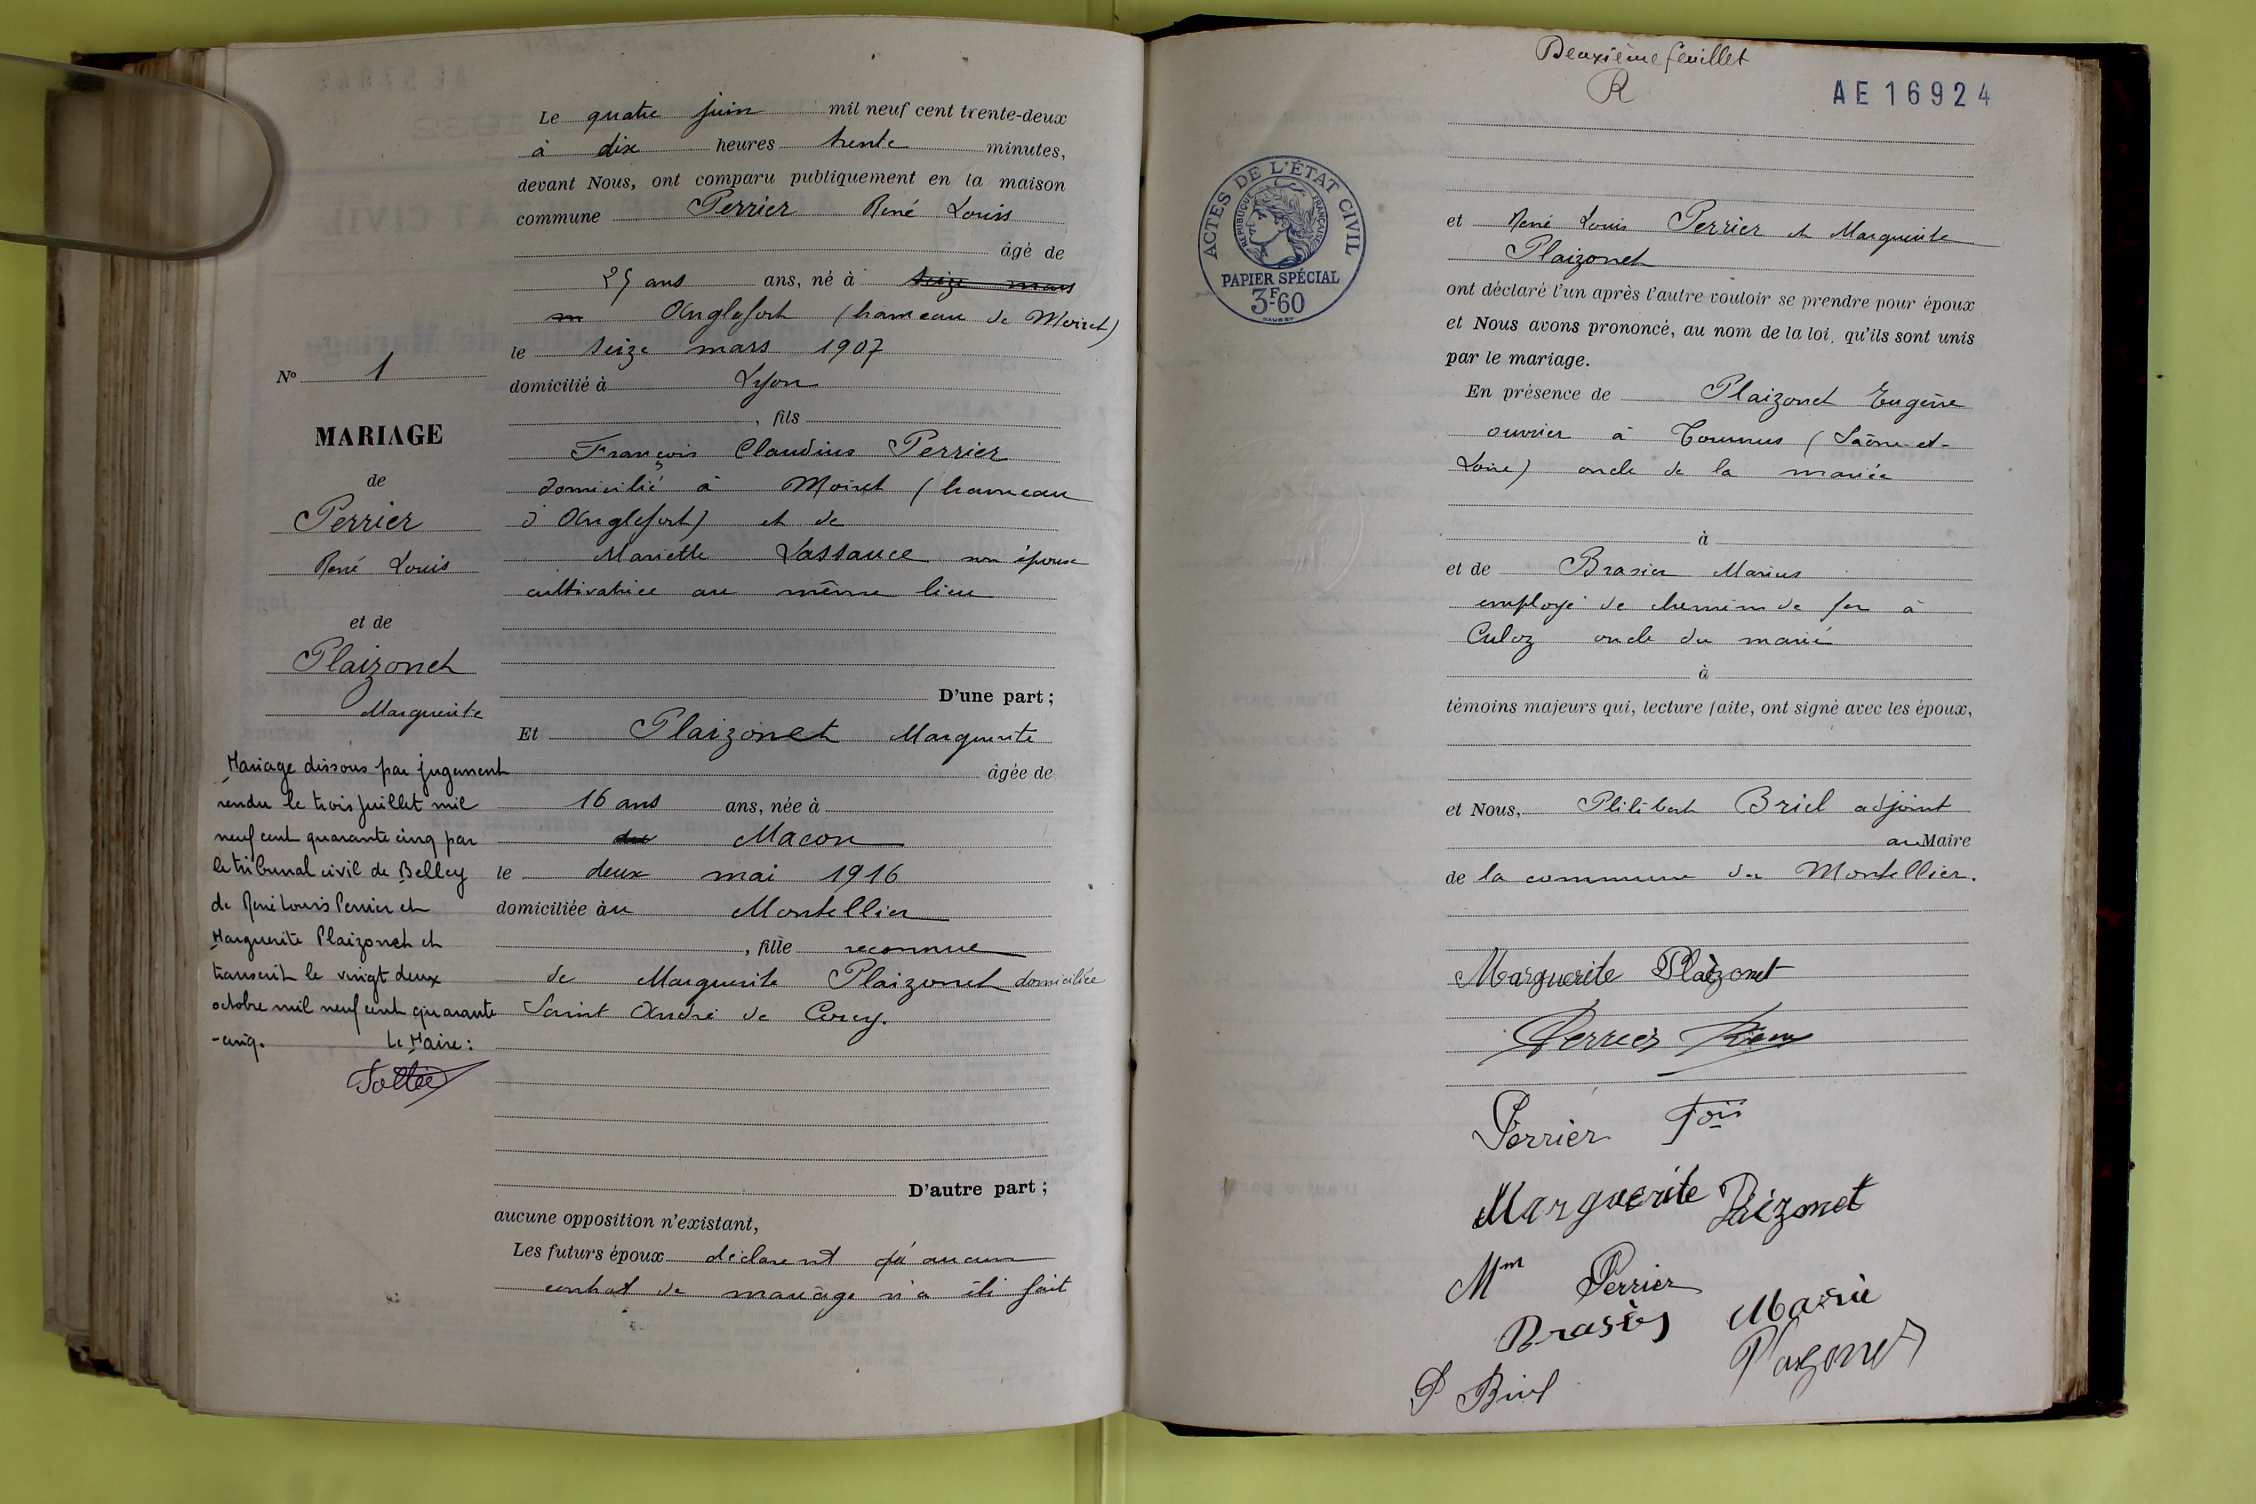 Le quatre juin mil neuf cent trente-deux
à dix heures trente minutes,
devant Nous, ont comparu publiquement en la maison
commune Perrier René Louis
âgé de
25 ans ans, né à seize mars
Anglefort (hameau de Moiret)
le seize mars 1907
domicilié à Lyon
, fils
François Claudius Perrier
domicilié à Moiret (hameau
d'Anglefort) et de
Mariette Lassauce son épouse
cultivatrice au même lieu
D'une part ;
Et Plaizonet Marguerite
âgée de
16 ans ans, née à
Macon
le deux mai 1916
domiciliée au Montellier
, fille reconnue
de Marguerite Plaizonet domiciliée
Saint André de Corcy.
D'autre part ;
aucune opposition n'existant,
Les futurs époux déclarent qu'aucun
contrat de mariage n'a été fait
No 1
MARIAGE
de
Perrier
René Louis
et de
Plaizonet
Marguerite
Mariage dissous par jugement
rendu le trois juillet mil
neuf cent quarante cinq par
le tribunal civil de Belley
de René Louis Perrier et
Marguerite Plaizonet et
transcrit le vingt deux
octobre mil neuf cent quarante
-cinq. Le Maire :
Deuxième feuillet
R
AE 16924
ACTES DE L'ÉTAT CIVIL
RÉPUBLIQUE FRANÇAISE
PAPIER SPÉCIAL
3F60
et René Louis Perrier et Marguerite
Plaizonet
ont déclaré l'un après l'autre vouloir se prendre pour époux
et Nous avons prononcé, au nom de la loi, qu'ils sont unis
par le mariage.
En présence de Plaizonet Eugène
ouvrier à Tournus (Saône-et-
Loire) oncle de la mariée
à
et de Brasier Marius
employé de chemin de fer à
Culoz oncle du marié
à
témoins majeurs qui, lecture faite, ont signé avec les époux,
et Nous, Philibert Briel adjoint
au Maire
de la commune du Montellier.
Marguerite Plaizonet
Perrier René
Perrier Fois
Marguerite Plaizonet
Mm Perrier
Marie
Plaizonet
P Briel